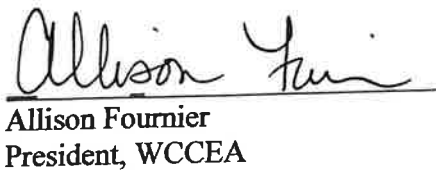 Allison Fournier
Allison Fournier
President, WCCEA